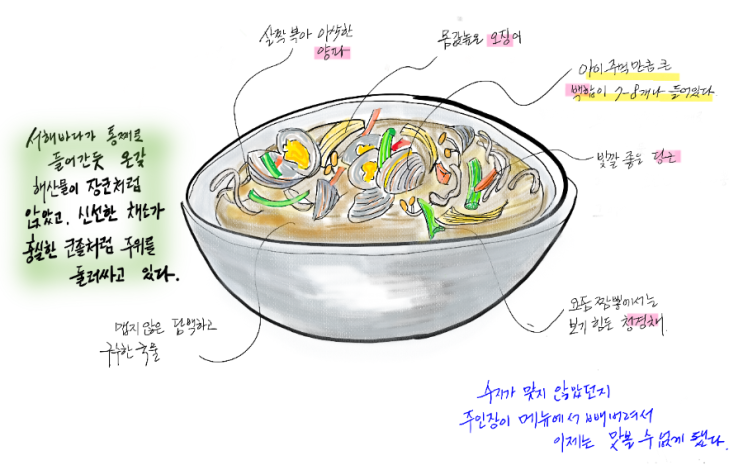 살짝 볶아 아삭한
양파
몸값높은 오징어
아이 주먹만큼 큰
백합이 7~8개나 들어있다
빛깔 좋은 당근
서해바다가 통째로
들어간듯 온갖
해산물이 장군처럼
앉았고, 신선한 채소가
충실한 군졸처럼 주위를
둘러싸고 있다.
맵지 않은 담백하고
구수한 국물
요즘 짬뽕에서는
보기 힘든 청경채
수지가 맞지 않았던지
주인장이 메뉴에서 빼버려서
이제는 맛볼 수 없게 됐다.